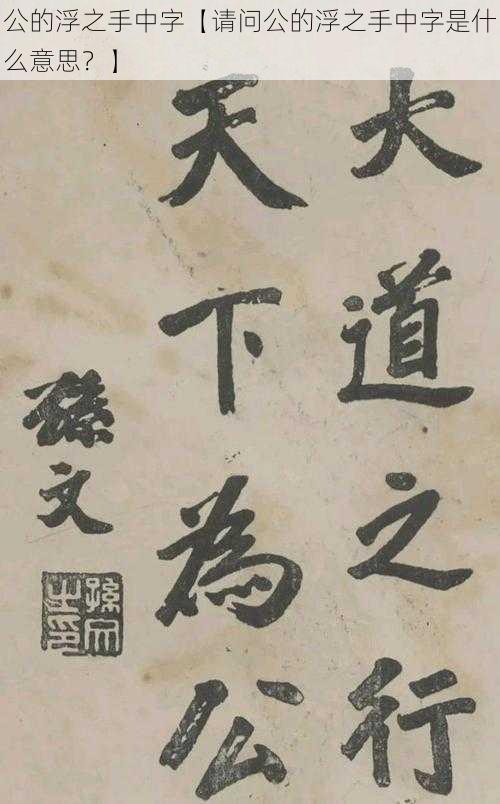 公的浮之手中字【请问公的浮之手中字是什
么意思？】
大道之行
天下為公
孫文
孫文之印